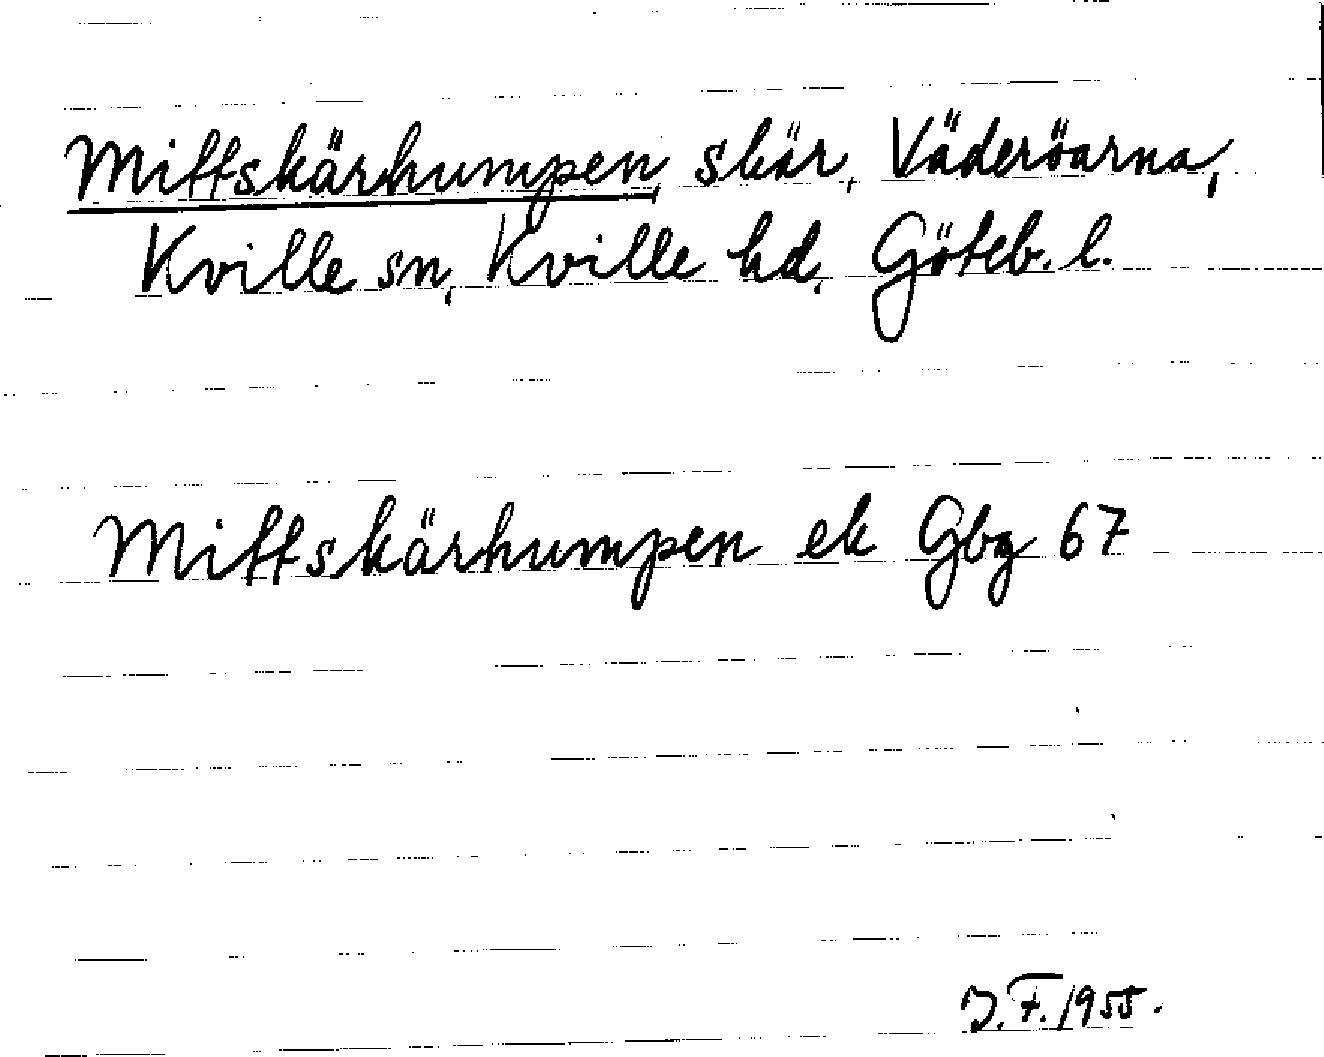 Miffskärhumpen, skär, Väderöarna,
Kville sn, Kville hd, Göteb. l.
Miffskärhumpen ek Gbg 67
J.F. 1955.